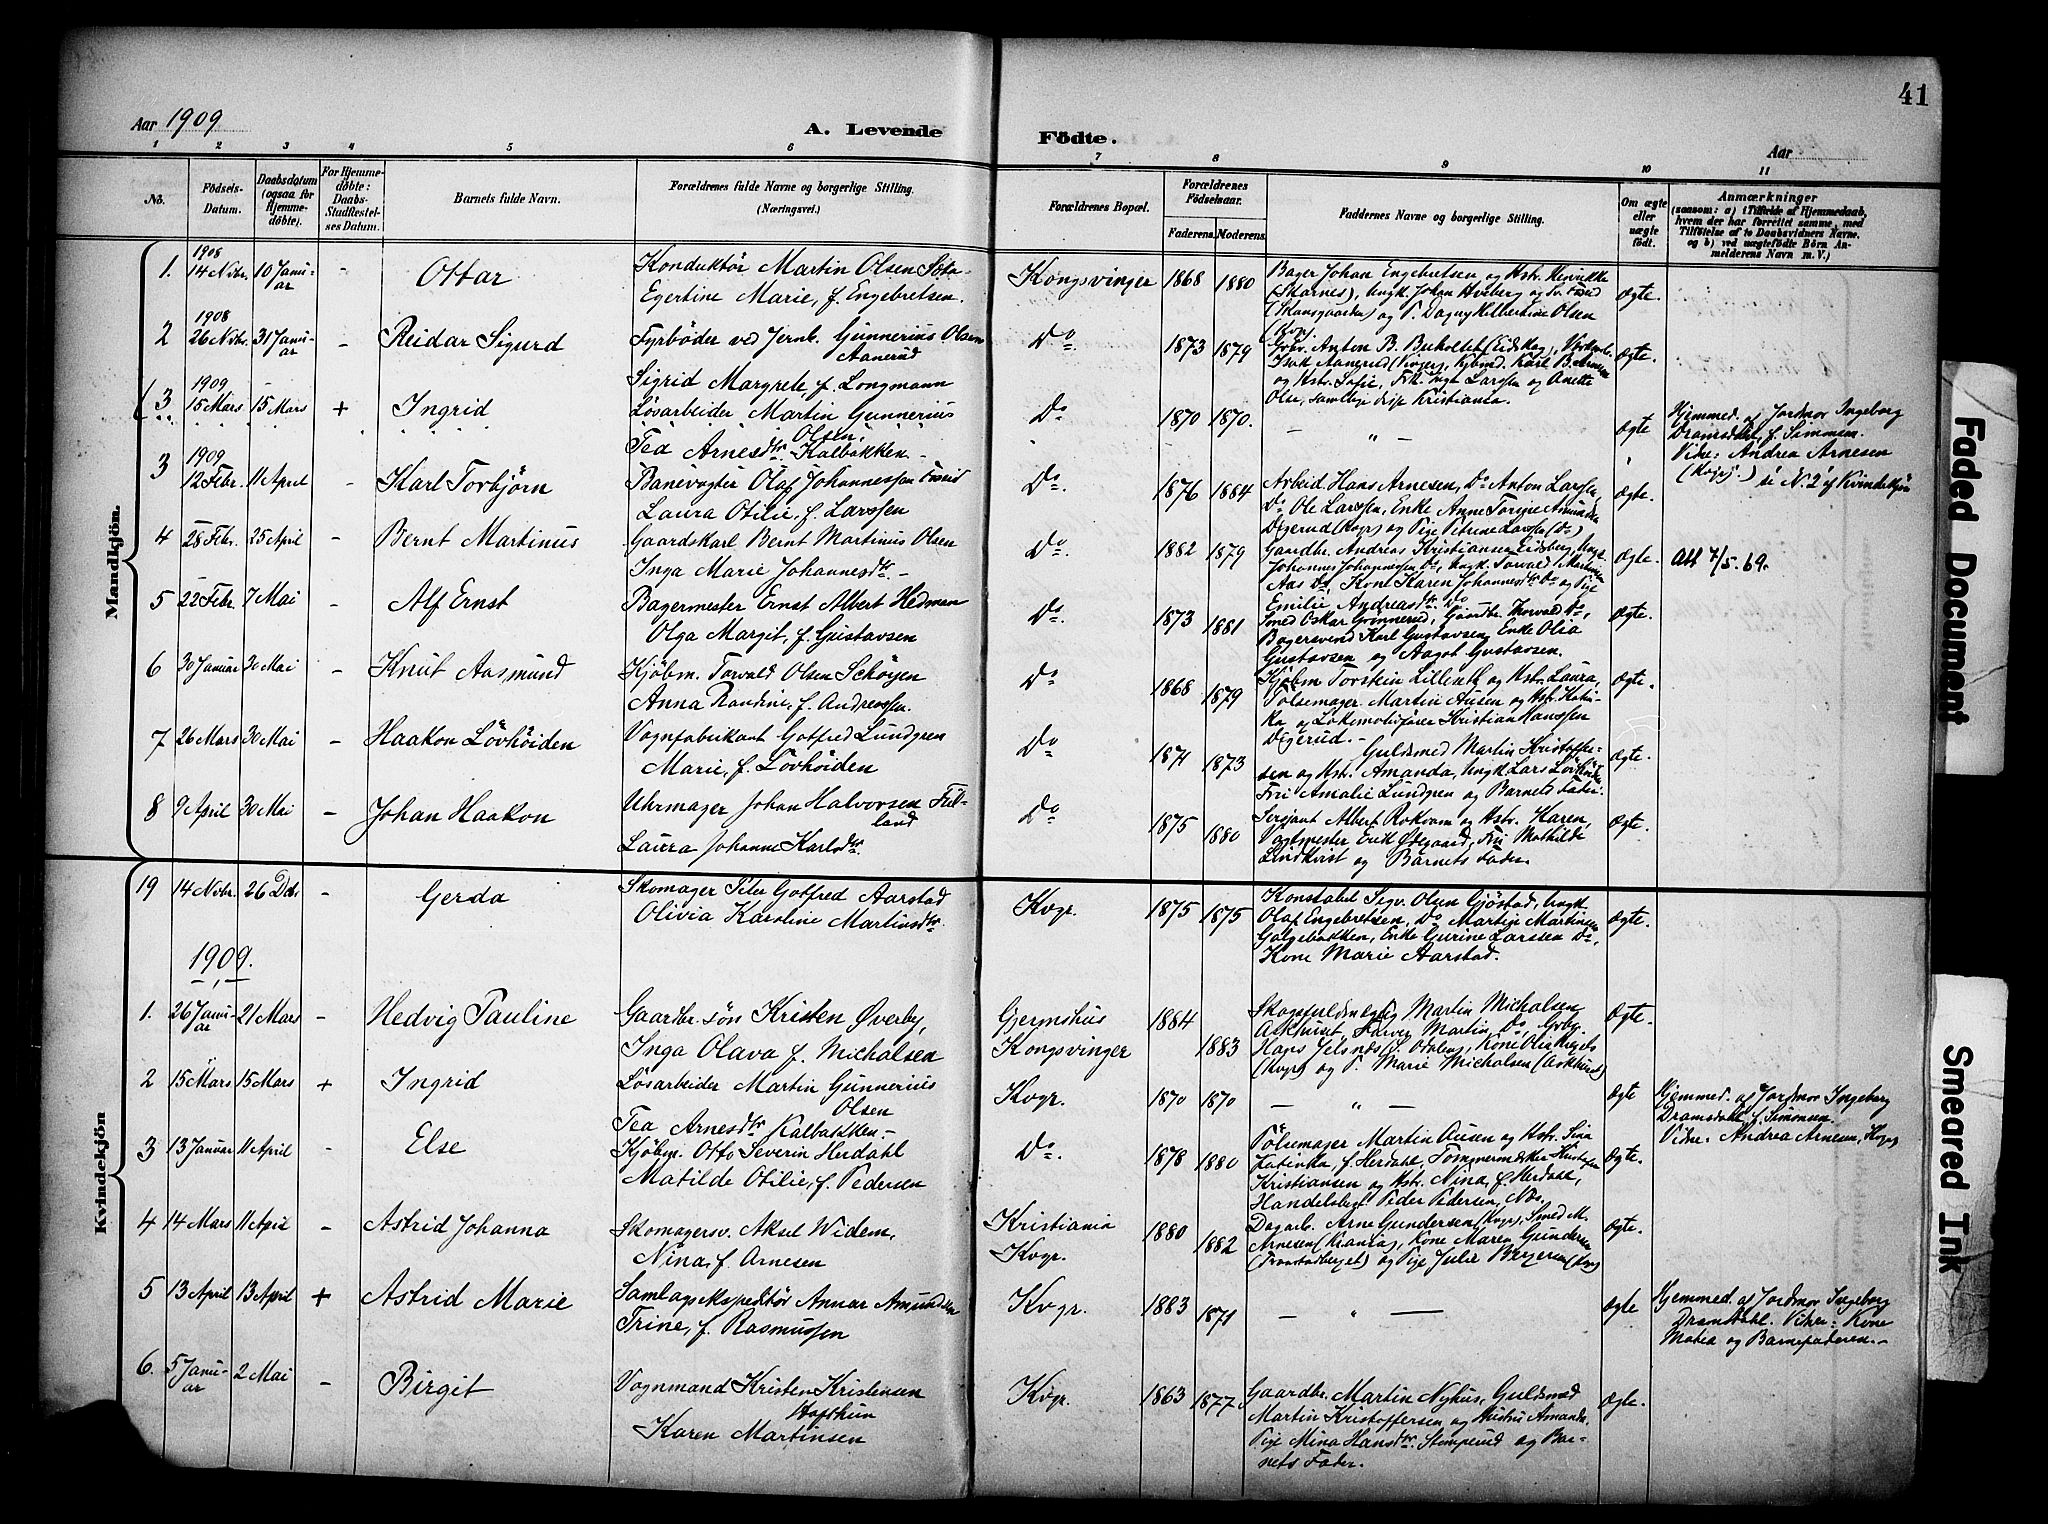 41
Aar 1909
A. Levende
Födte.
Aar
1 2 3 4 5 6 7 8 9 10 11
No.
Födsels-Datum.
Daabsdatum (ogsaa for Hjemme-döbte).
For Hjemme-döbte: Daabs-Stadfæstel-ses Datum.
Barnets fulde Navn.
Forældrenes fulde Navne og borgerlige Stilling. (Næringsvei.)
Forældrenes Bopæl.
Forældrenes Födselsaar.
Faderens. Moderens.
Faddernes Navne og borgerlige Stilling.
Om ægte eller uægte födt.
Anmærkninger
(saasom: a) i Tilfælde af Hjemmedaab, hvem der har forrettet samme, med Tilföielse af to Daabsvidners Navne, og b) ved uægtefödte Börn Anmelderens Navn m. V.)
Mandkjön.
1. 1908 14 Nvbr. 10 Januar - Ottar
Konduktör Martin Olsen Sæta
Egertine Marie, f. Engebretsen.
Kongsvinger 1868 1880
Bager Johan Engebretsen og Hstr.
(Skarnes), Ungk. Johan Hveberg og
(Skansgaarden) og P. Dagny Hilbertine Olsen
(Kvgr)
Ægte.
2 1908 26 Nvbr. 31 Januar - Reidar Sigurd
Fyrböder ved Jernb. Gunnerius Olsen
Aanerud
Sigrid Margrete f. Longmann
Do 1873 1879
Anton B. (Eidskog),
og Hstr. Sofie, Frk. Inga Larssen og Anette
Olsen, samtlige disse Kristiania.
Ægte.
(3 1909 15 Mars 15 Mars + Ingrid
Lösarbeider Martin Gunnerius
Olsen,
Tea Arnesdtr. Kalbakken -
Do 1870 1870.
- " -
Ægte
Hjemmed. af Jordmor Ingeborg
Dramsdahl, f. Simonsen
Vidne: Andrea Arnesen
(Kvgr.) se N 2 af Kvindekjön
3 1909 12 Febr. 11 April - Karl Torbjörn
Banevogter Olaf Johannessen
Laura Otilie, f. Larssen
Do. 1876 1884
Arbeid Hans Arnesen, Do Anton Larssen,
Do Ole Larssen, Enke Anne
Digerud (Kvgr) og Pige Petrine Larssen (Do)
Ægte.
4 28 Febr. 25 April - Bernt Martinus
Gaardskarl Bernt Martinus Olsen
Inga Marie Johannesdtr. -
Do. 1882 1879
Gaardbr. Andreas Kristiansen Eidsberg, Ungk.
Johannes Johannessen Do, Ungk. Torvald
Aas Do, Kone Karen Johannesdtr Do og Pige
Emilie Andreasdtr. Do
Ægte.
Att 7/5. 69.
5 22 Febr. 7 Mai - Alf Ernst
Bagermester Ernst Albert Hedman
Olga Margit, f. Gustavsen
Do. 1873 1881
Smed Oskar Grinnerud, Gaardbr. Thorvald Do,
Bagersvend Karl Gustavsen, Enke Olia
Gustavsen og Aagot Gustavsen.
Ægte.
6 30 Januar 30 Mai - Knut Aasmund
Kjöbm. Torvald Olsen Schöyen
Anna Randine, f. Andreassen.
Do 1868 1879
Kjöbm Torstein og Hstr. Laura,
Pölsemager Martin Ausen og Hstr. Katin-
ka og Lokomotivförer Kristian Hanssen
Digerud. -
Ægte.
7 26 Mars 30 Mai - Haakon Lövhöiden
Vognfabrikant Gotfred Lundgren
Marie, f. Lövhöiden
Do 1871 1873
Guldsmed Martin Kristoffer-
sen og Hstr. Amanda, Ungk Lars Lövhöiden
Frk. Amalie Lundgren og Barnets Fader.
Ægte.
8 9 April 30 Mai - Johan Haakon
Uhrmager Johan Halvorsen Ful-
land
Laura Johanne Karlsdtr.
Do 1875 1880
Sersjant Albert Rokvam og Hstr. Karen,
Vagtmester Erik Ødegaard, Frk Mathilde
Lindkvist og Barnets Fader.
Ægte.
Kvindekjön
19 14 Nvbr. 26 Dcbr - Gerda
Skomager Peter Gotfred Aarstad
Olivia Karoline Martinsdtr.
Kvgr. 1875 1875
Konstabel Sigv. Olsen Gjöstad, Ungk
Olaf Engebretsen, Do Martin Martinsen
Galgebakken, Enke Gurine Larssen Do,
Kone Marie Aarstad.
Ægte.
1909.
1. 26 Januar 21 Mars - Hedvig Pauline
Gaardbr. sön Kristen Øverby,
Inga Olava f. Michalsen
Gjermshus
Kongsvinger
1884 1883
Skogsfuldmægtig Martin Michalsen
Martin Do,
(Kvgr) og P. Marie Michalsen
Ægte.
2 15 Mars 15 Mars + Ingrid
Lösarbeider Martin Gunnerius
Olsen
Tea Arnesdtr Kalbakken. -
Kvgr. 1870 1870
- " -
Ægte
Hjemmed. af Jordmor Ingeborg
Dramsdahl f. Simonsen
Vidne: Andrea Arnesen, Kvgr
3 13 Januar 11 April - Else
Kjöbm. Otto Severin Herdahl
Matilde Otilie, f. Pedersen
Do. 1878 1880
Pölsemager Martin Ausen og Hstr. Sina
Katinka, f. Herdahl, Tömmermerker
Kristiansen og Hstr. Nina, f. Herdahl,
Handelsbgt Peder Pedersen, Næs.
Ægte.
4 14 Mars 11 April - Astrid Johanna
Skomagersv. Aksel Widem,
Nina, f. Arnesen
Kristiania
Kvgr.
1880 1882
Dagarb. Arne Gundersen (Kvgr), Smed M.
Arnesen (Krania), Kone Maren Gundersen
og Pige Julie Bergersen (Kvgr)
Ægte.
5 13 April 13 April + Astrid Marie
Samlagsekspeditör Annar Amundsen
Trine, f. Rasmussen
Kvgr. 1883 1871
- " -
Ægte
Hjemmed. af Jordmor Ingeborg
Dramsdahl. Vidner: Kone
Matea og Barnefaderen. -
6. 5 Januar 2 Mai - Birgit
Vognmand Kristen Kristensen
Karen Martinsen
Kvgr. 1863 1877
Gaardbr. Martin Nyhus, Guldsmed
Martin Kristoffersen og Hustru Amanda
Pige Mina Hansdtr. Stemperud og Bar-
nets Fader.
Ægte.
Faded Document
Smeared Ink